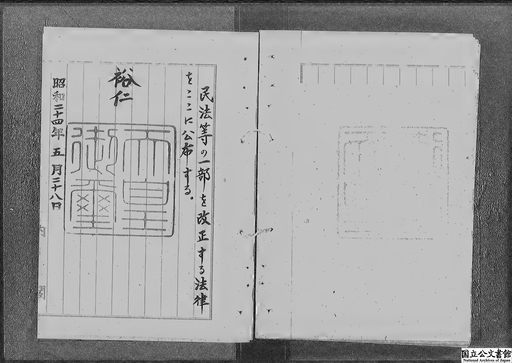 民法等の一部を改正する法律
をここに公布する。
裕仁
天皇御璽
昭和二十四年五月二十八日
内閣
国立公文書館
National Archives of Japan